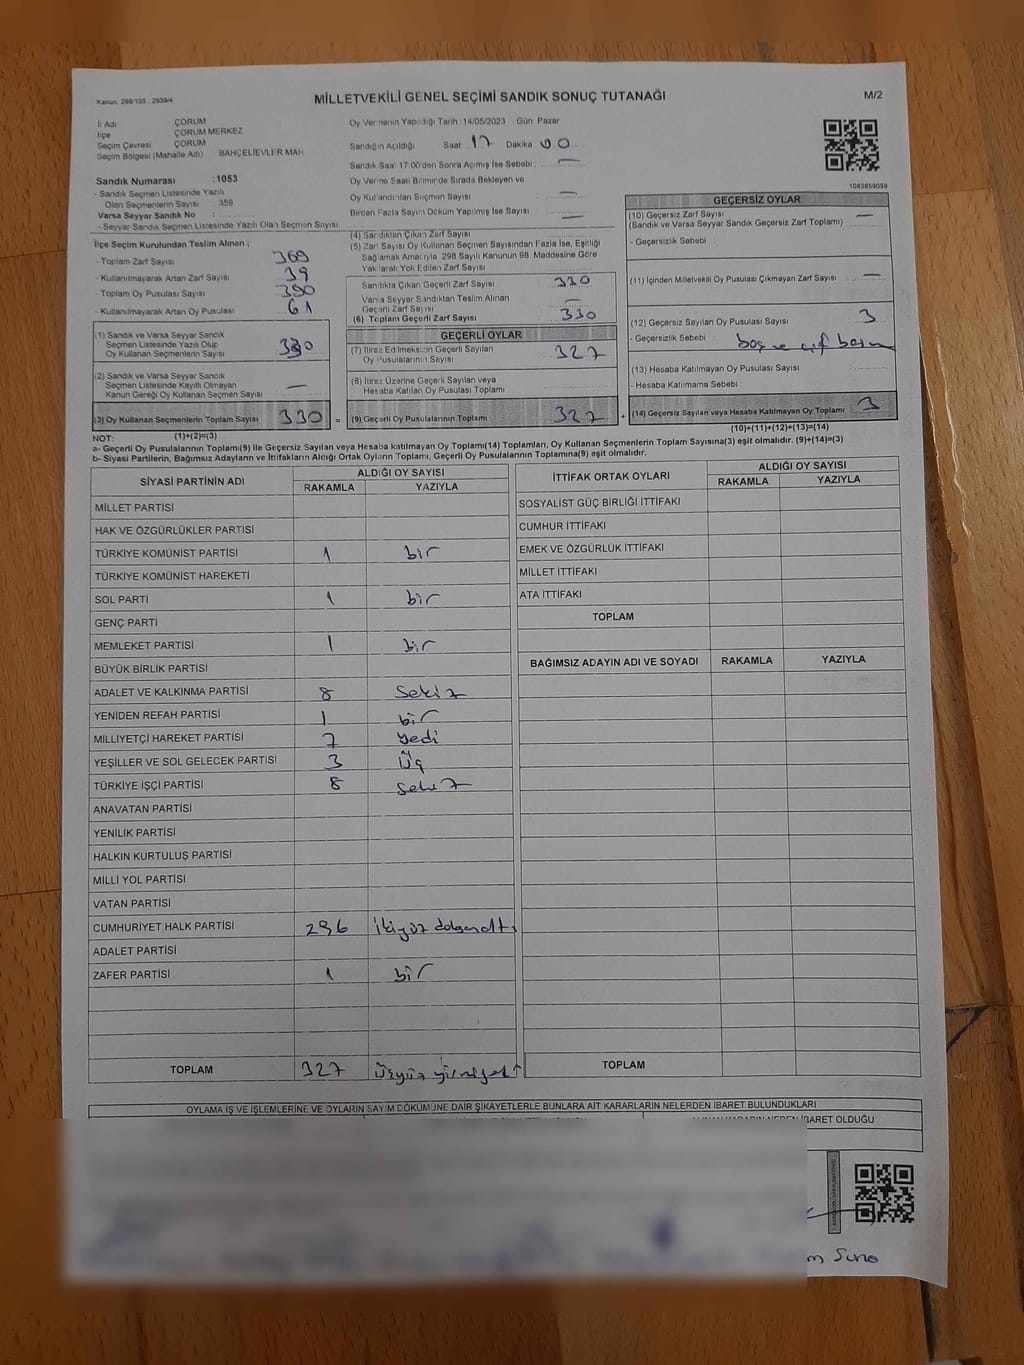 Kanun: 298/105 , 2839/4
MİLLETVEKİLİ GENEL SEÇİMİ SANDIK SONUÇ TUTANAĞI
M/2
İl Adı : ÇORUM
İlçe : ÇORUM MERKEZ
Seçim Çevresi : ÇORUM
Seçim Bölgesi (Mahalle Adı) BAHÇELİEVLER MAH
Sandık Numarası : 1053
- Sandık Seçmen Listesinde Yazılı
Olan Seçmenlerin Sayısı : 359
Varsa Seyyar Sandık No :
- Seyyar Sandık Seçmen Listesinde Yazılı Olan Seçmen Sayısı
Oy Vermenin Yapıldığı Tarih : 14/05/2023 Gün: Pazar
Sandığın Açıldığı Saat 17 Dakika 00
Sandık Saat 17:00'den Sonra Açılmış İse Sebebi : —
Oy Verme Saati Bitiminde Sırada Bekleyen ve
Oy Kullandırılan Seçmen Sayısı —
Birden Fazla Sayım Döküm Yapılmış İse Sayısı —
1083859059
İlçe Seçim Kurulundan Teslim Alınan ;
- Toplam Zarf Sayısı 369
- Kullanılmayarak Artan Zarf Sayısı 39
- Toplam Oy Pusulası Sayısı
- Kullanılmayarak Artan Oy Pusulası 61
(1) Sandık ve Varsa Seyyar Sandık
Seçmen Listesinde Yazılı Olup
Oy Kullanan Seçmenlerin Sayısı 330
(2) Sandık ve Varsa Seyyar Sandık
Seçmen Listesinde Kayıtlı Olmayan
Kanun Gereği Oy Kullanan Seçmen Sayısı —
(3) Oy Kullanan Seçmenlerin Toplam Sayısı 330 =
(1)+(2)=(3)
(4) Sandıktan Çıkan Zarf Sayısı
(5) Zarf Sayısı Oy Kullanan Seçmen Sayısından Fazla İse, Eşitliği
Sağlamak Amacıyla 298 Sayılı Kanunun 98. Maddesine Göre
Yakılarak Yok Edilen Zarf Sayısı
Sandıkta Çıkan Geçerli Zarf Sayısı 330
Varsa Seyyar Sandıktan Teslim Alınan
Geçerli Zarf Sayısı —
(6) Toplam Geçerli Zarf Sayısı 330
GEÇERLİ OYLAR
(7) İtiraz Edilmeksizin Geçerli Sayılan
Oy Pusulalarının Sayısı 327
(8) İtiraz Üzerine Geçerli Sayılan veya
Hesaba Katılan Oy Pusulası Toplamı
(9) Geçerli Oy Pusulalarının Toplamı 327 +
GEÇERSİZ OYLAR
(10) Geçersiz Zarf Sayısı —
(Sandık ve Varsa Seyyar Sandık Geçersiz Zarf Toplamı)
- Geçersizlik Sebebi :
(11) İçinden Milletvekili Oy Pusulası Çıkmayan Zarf Sayısı —
(12) Geçersiz Sayılan Oy Pusulası Sayısı 3
- Geçersizlik Sebebi : boş ve çift basım
(13) Hesaba Katılmayan Oy Pusulası Sayısı
- Hesaba Katılmama Sebebi :
(14) Geçersiz Sayılan veya Hesaba Katılmayan Oy Toplamı 3
(10)+(11)+(12)+(13)=(14)
NOT:
a- Geçerli Oy Pusulalarının Toplamı(9) ile Geçersiz Sayılan veya Hesaba katılmayan Oy Toplamı(14) Toplamları, Oy Kullanan Seçmenlerin Toplam Sayısına(3) eşit olmalıdır. (9)+(14)=(3)
b- Siyasi Partilerin, Bağımsız Adayların ve İttifakların Aldığı Ortak Oyların Toplamı, Geçerli Oy Pusulalarının Toplamına(9) eşit olmalıdır.
SİYASİ PARTİNİN ADI
ALDIĞI OY SAYISI
RAKAMLA YAZIYLA
MİLLET PARTİSİ
HAK VE ÖZGÜRLÜKLER PARTİSİ
TÜRKİYE KOMÜNİST PARTİSİ 1 bir
TÜRKİYE KOMÜNİST HAREKETİ
SOL PARTİ 1 bir
GENÇ PARTİ
MEMLEKET PARTİSİ 1 bir
BÜYÜK BİRLİK PARTİSİ
ADALET VE KALKINMA PARTİSİ 8 Sekiz
YENİDEN REFAH PARTİSİ 1 bir
MİLLİYETÇİ HAREKET PARTİSİ 7 yedi
YEŞİLLER VE SOL GELECEK PARTİSİ 3 Üç
TÜRKİYE İŞÇİ PARTİSİ 8 Sekiz
ANAVATAN PARTİSİ
YENİLİK PARTİSİ
HALKIN KURTULUŞ PARTİSİ
MİLLİ YOL PARTİSİ
VATAN PARTİSİ
CUMHURİYET HALK PARTİSİ 296 ikiyüz doksanaltı
ADALET PARTİSİ
ZAFER PARTİSİ 1 bir
TOPLAM 327 Üçyüz yirmiyedi
İTTİFAK ORTAK OYLARI
ALDIĞI OY SAYISI
RAKAMLA YAZIYLA
SOSYALİST GÜÇ BİRLİĞİ İTTİFAKI
CUMHUR İTTİFAKI
EMEK VE ÖZGÜRLÜK İTTİFAKI
MİLLET İTTİFAKI
ATA İTTİFAKI
TOPLAM
BAĞIMSIZ ADAYIN ADI VE SOYADI RAKAMLA YAZIYLA
TOPLAM
OYLAMA İŞ VE İŞLEMLERİNE VE OYLARIN SAYIM DÖKÜMÜNE DAİR ŞİKAYETLERLE BUNLARA AİT KARARLARIN NELERDEN İBARET BULUNDUKLARI
İBARET OLDUĞU